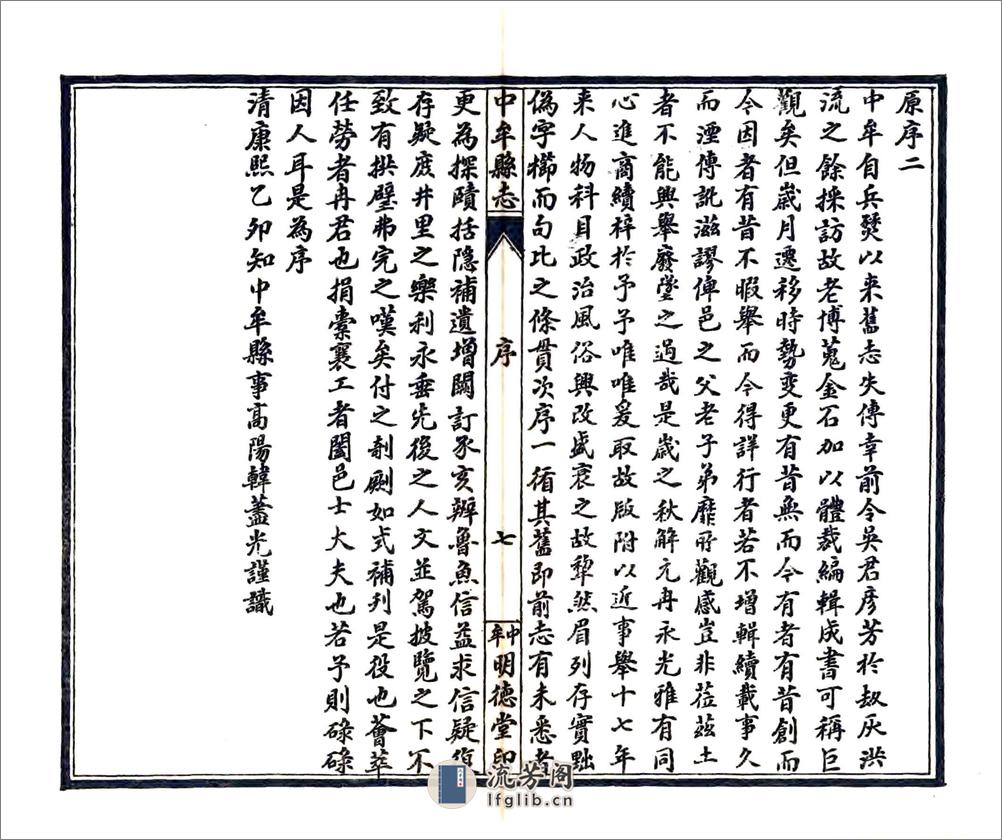 原序二
中牟自兵燹以来舊志失傳幸前令吳君彥芳於刼灰洪
流之餘採訪故老博蒐金石加以體裁編輯成書可稱巨
觀矣但歲月遷移時勢變更有昔無而今有者有昔創而
今因者有昔不暇舉而今得詳行者若不增輯續載事久
而湮傳訛滋謬俾邑之父老子弟靡所觀感豈非莅茲土
者不能興舉廢墜之過哉是歲之秋解元冉永光雅有同
心進商續梓於予予唯唯爰取故版附以近事舉十七年
来人物科目政治風俗興改盛衰之故犂然眉列存實黜
偽字櫛而句比之條貫次序一循其舊即前志有未悉者
中牟縣志
序
七
中牟明德堂印
更為探賾括隱補遺增闕訂豕亥辨魯魚信益求信疑俟
存疑庶井里之樂利永垂先後之人文並駕披覽之下不
致有拱璧弗完之嘆矣付之剞劂如式補刊是役也薈萃
任勞者冉君也捐橐襄工者闔邑士大夫也若予則碌碌
因人耳是為序
清康熙乙卯知中牟縣事高陽韓藎光謹識
流芳阁
lfglib.cn